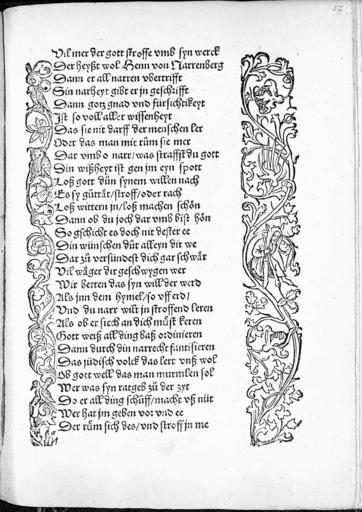 37
Vil mer der gott stroffe vmb syn werck
Der heyßt wol Henn von Narrenberg
Dann er all narren vbertrifft
Sin narheyt gibt er jn geschrifft
Dann gotz gnad vnd fürsichtikeyt
Ist so voll aller wissenheyt
Das sie nit darff der menschen ler
Oder das man mit rüm sie mer
Dar vmb o narr / was straffst du gott
Sin wißheyt ist gen jm eyn spott
Loß gott důn synem willen nach
Es sy gůttåt / stroff / oder rach
Loß wittern jn / loß machen schön
Dann ob du joch dar vmb bist hön
So gschicht es doch nit dester ee
Din wünschen důt alleyn dir we
Dar zů versündest dich gar schwår
Vil wåger dir geschwygen wer
Wir betten das syn will der werd
Als jnn dem hymel / so vff erd /
Vnd du narr wilt jn stroffend leren
Als ob er sich an dich můst keren
Gott weiß all ding baß ordinieren
Dann durch din narrecht fantisieren
Das jüdisch volck das lert vnß wol
Ob gott well das man murmlen sol
Wer was syn ratgeb zů der zyt
Do er all ding schůff / macht vß nüt
Wer hat jm geben vor vnd ee
Der rům sich des / vnd stroff jn me